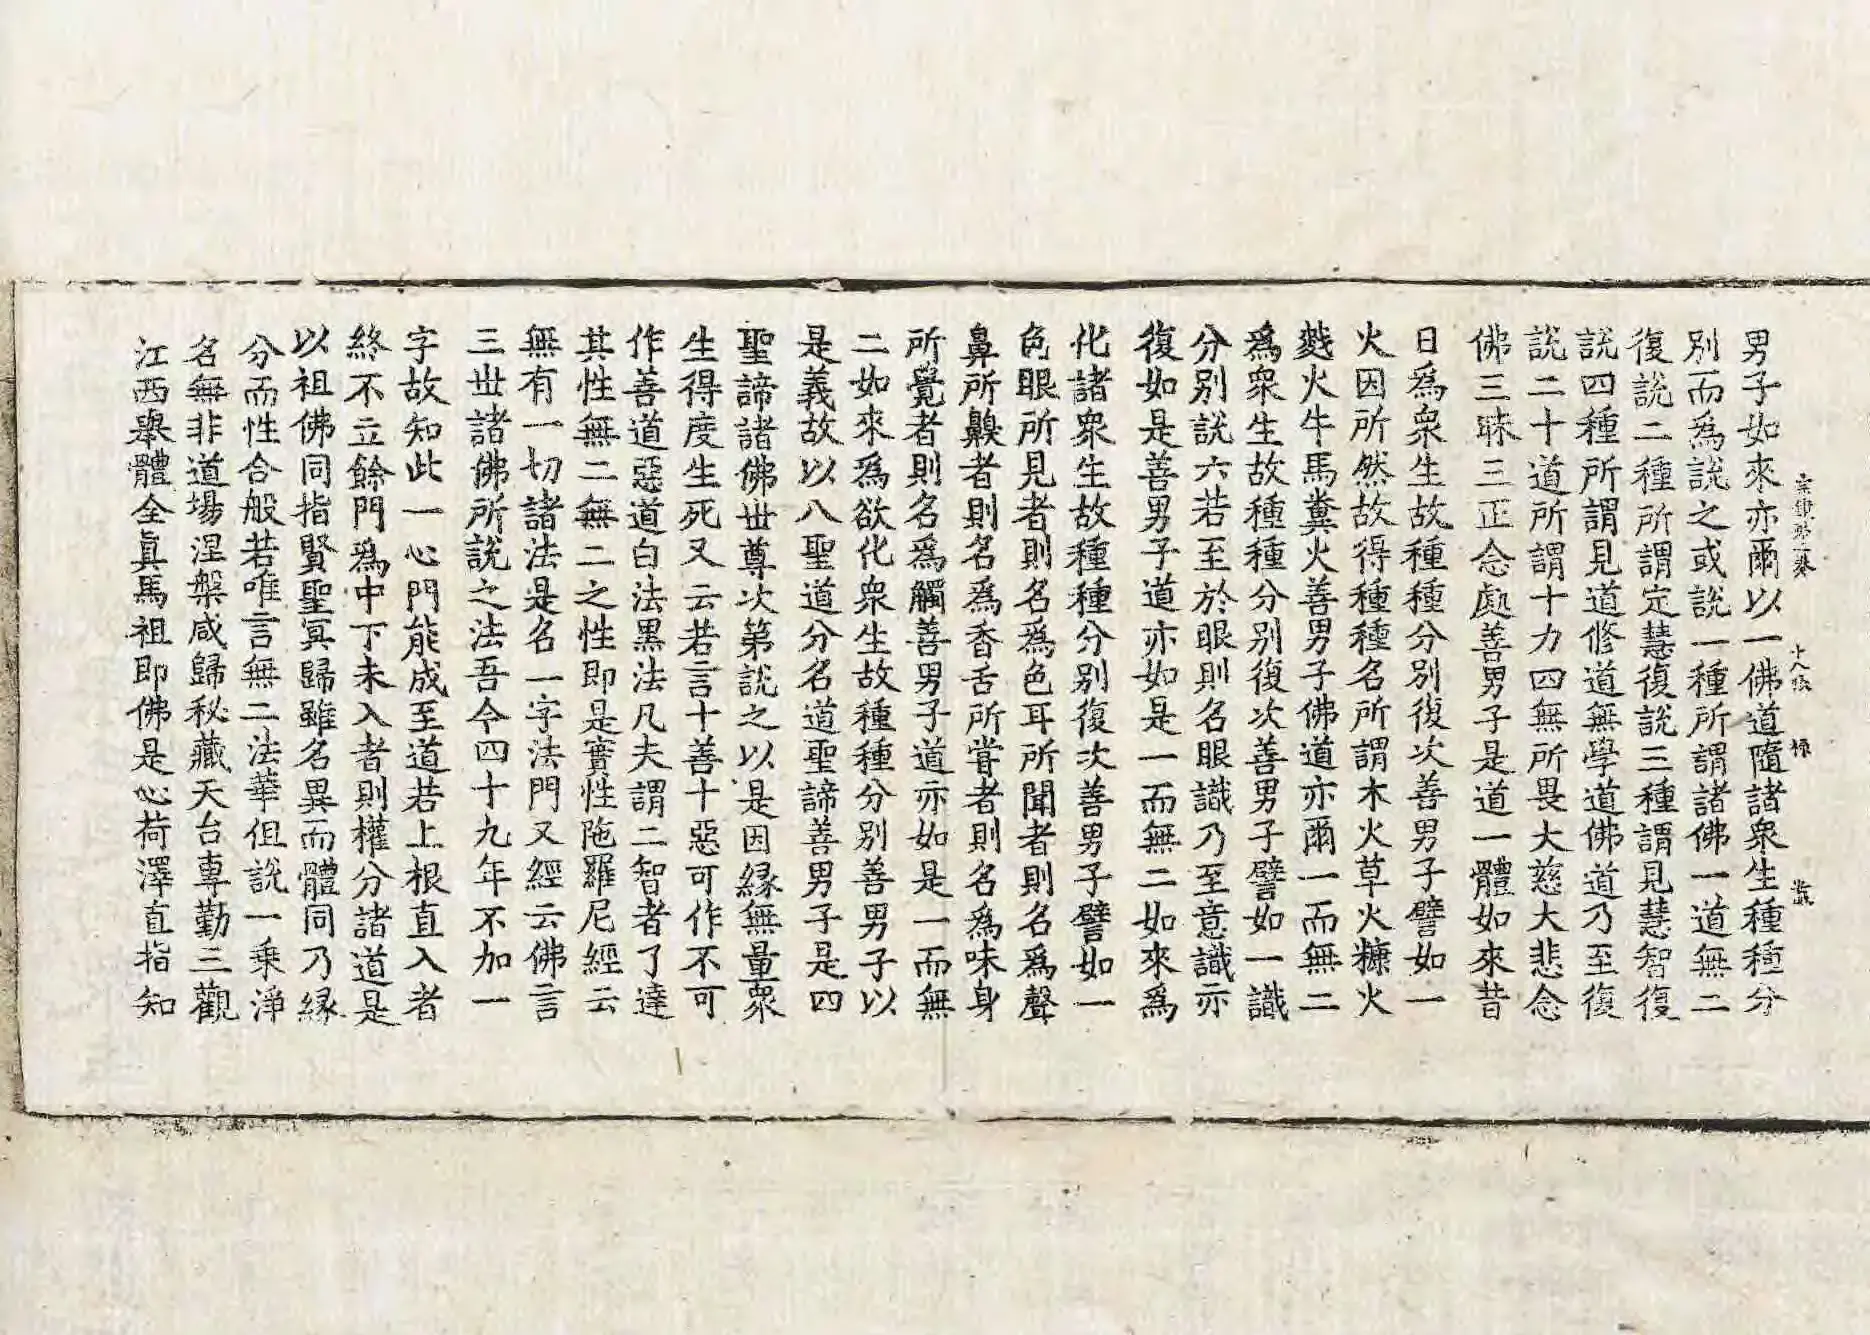 男子如來亦爾以一佛道隨諸衆生種種分
別而為說之或說一種所謂諸佛一道無二
復說二種所謂定慧復說三種謂見慧智復
說四種所謂見道修道無學道佛道乃至復
說二十道所謂十力四無所畏大慈大悲念
佛三昧三正念處善男子是道一體如來昔
日為衆生故種種分別復次善男子譬如一
火因所然故得種種名所謂木火草火糠火
䴬火牛馬糞火善男子佛道亦爾一而無二
為衆生故種種分別復次善男子譬如一識
分別說六若至於眼則名眼識乃至意識亦
復如是善男子道亦如是一而無二如來為
化諸衆生故種種分別復次善男子譬如一
色眼所見者則名為色耳所聞者則名為聲
鼻所齅者則名為香舌所甞者則名為味身
所覺者則名為觸善男子道亦如是一而無
二如來為欲化衆生故種種分別善男子以
是義故以八聖道分名道聖諦善男子是四
聖諦諸佛世尊次第說之以是因縁無量衆
生得度生死又云若言十善十惡可作不可
作善道惡道白法黑法凡夫謂二智者了達
其性無二無二之性即是實性陁羅尼經云
無有一切諸法是名一字法門又經云佛言
三世諸佛所說之法吾今四十九年不加一
字故知此一心門能成至道若上根直入者
終不立餘門為中下未入者則權分諸道是
以祖佛同指賢聖冥歸雖名異而體同乃縁
分而性合般若唯言無二法華但說一乘淨
名無非道場涅槃咸歸秘藏天台專勤三觀
江西舉體全眞馬祖即佛是心荷澤直指知